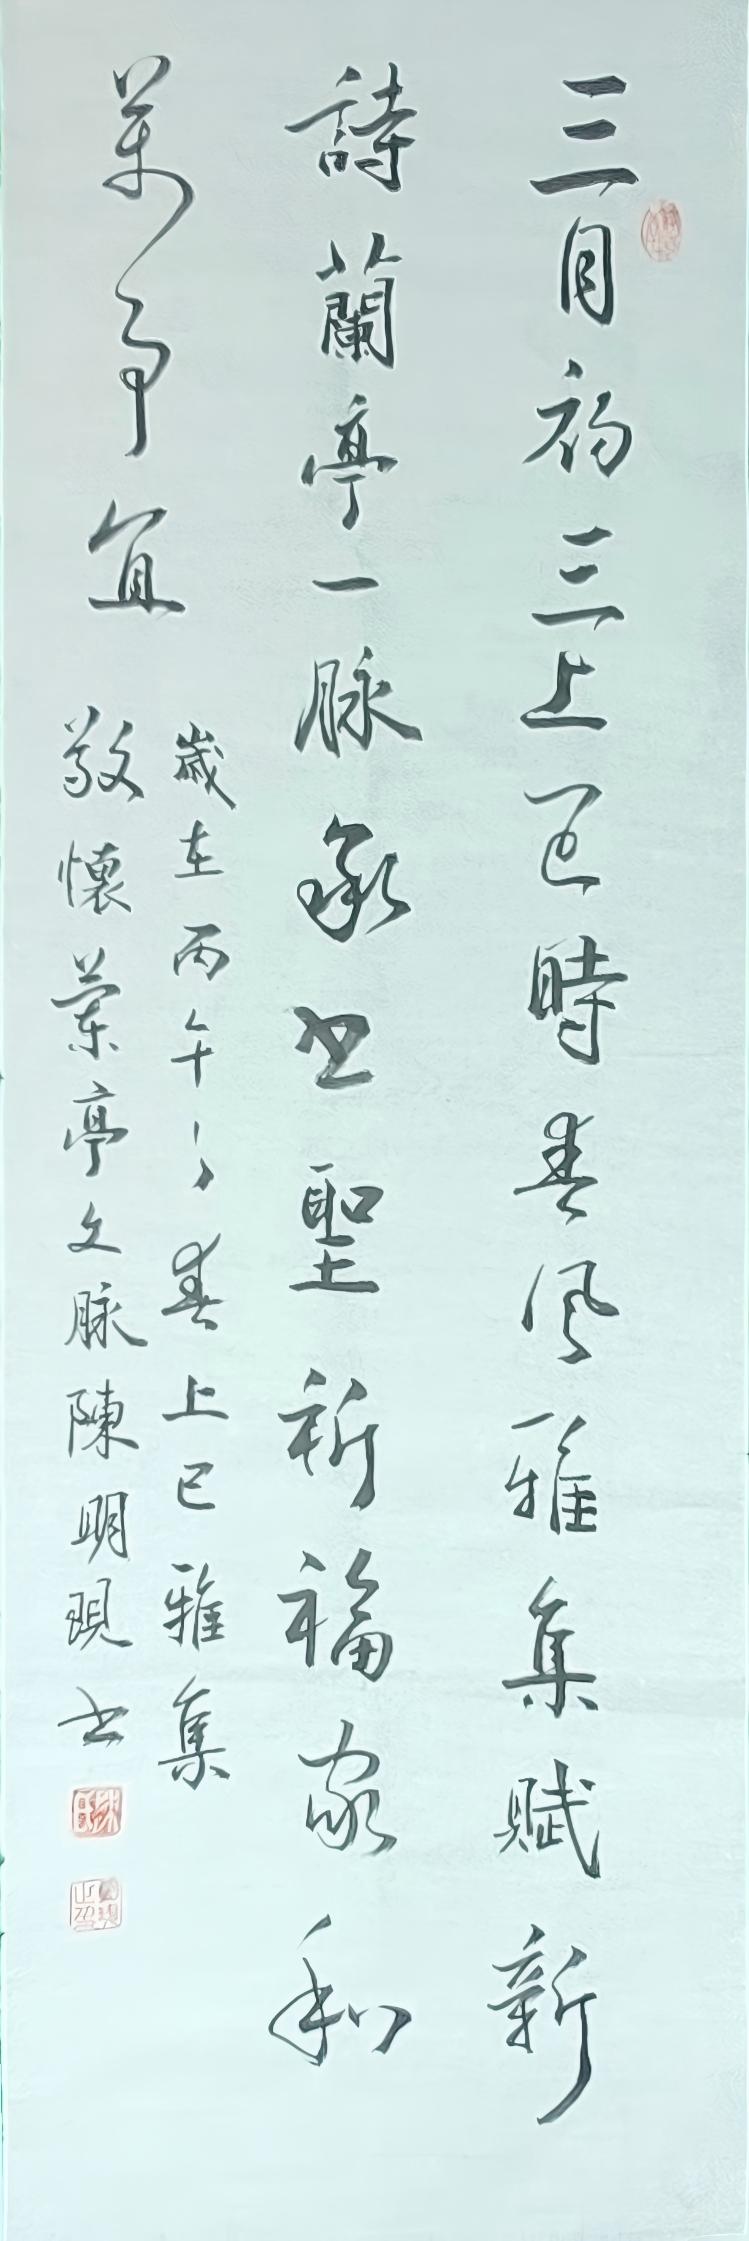 三月初三上巳時春風雅集賦新
詩蘭亭一脉承書聖祈福家和
萬事宜
歲在丙午之春上巳雅集
敬懷蘭亭文脉陳明現書